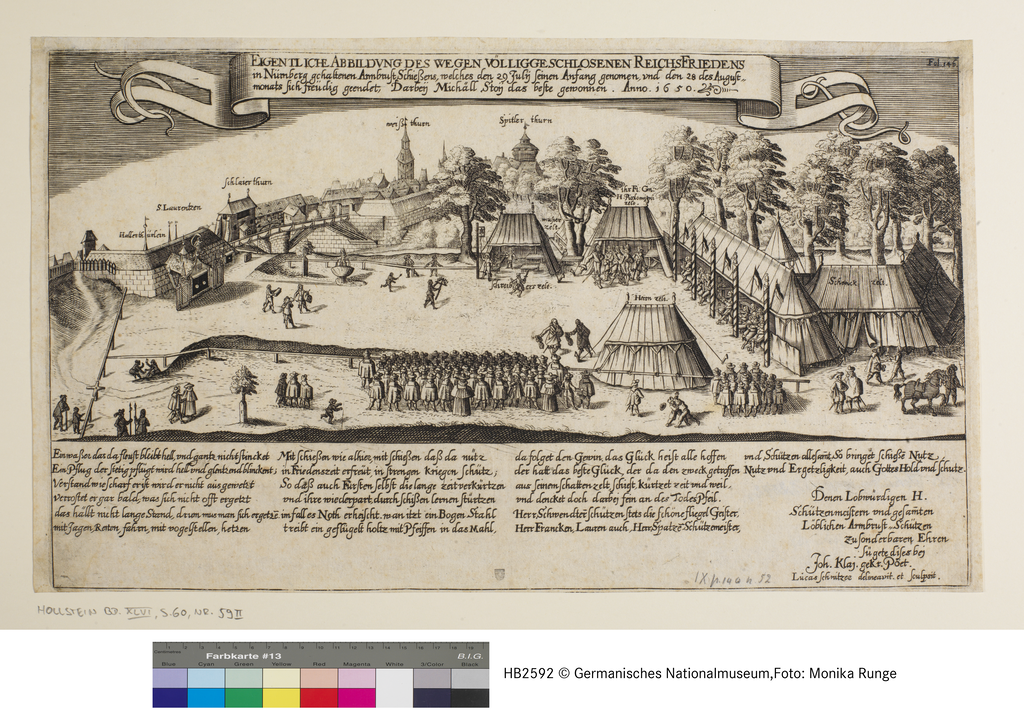 EIGENTLICHE ABBILDVNG DES WEGEN VÖLLIG GESCHLOSENEN REICHSFRIEDENS
in Nürnberg gehaltenen Armbrust Schießens, welches den 29 Julÿ seinen Anfang genomen, vnd den 28 des August-
monats sich freüdig geendet. Darbeÿ Michäll Stoÿ das beste gewonnen. Anno. 1650.
Fol. 146
weiß thurn
Spitler thurn
Schlaier thurn
S. Laurentzen
Haller
H
zelt.
zelt.
Herrn zelt.
Schmuck zelt.
Ein waßer das da fleust bleibt hell, vnd gantz nicht stincket
Ein Pflug der stetig pflügt wird hell vnd glentzend blincket;
Verstand wie scharf er ist wird er nicht ausgewetzt
verrostet er gar bald, was sich nicht offt ergetzt
das hällt nicht lange Stand, drum mus man sich ergetzen
mit jagen, karten, fahrn, mit vogelstellen, hetzen
Mit schießen wie alhier, mit schießen daß da nütz
in Friedenszeit erfreüt in strengen kriegen schütz;
So daß auch Fürsten selbst die lange zeit verkürtzen
vnd ihre wiederpart, durch schißen lernen stürtzen
im fall es Noth erheischt, man itzt ein Bogen Stahl
treibt ein geflügelt holtz mit Pfeiffen in das Mahl,
da folget den Gewin, das Glück heist alle hoffen
der hat das beste Glück, der da den zweck getroffen
aus seinem schatten zelt schießt, kürtzet zeit vnd weil,
vnd dencket doch darbeÿ fein an des Todes Pfeil.
Herr Schwendter schützen stets die schöne fliegel Geister,
Herr Francken, Lauren auch, Herr Spatzen Schützmeister,
vnd Schützen allesamt. So bringet schiße Nutz,
Nutz vnd Ergetzligkeit, auch Gottes Hold vnd schutz.
Denen Lobwürdigen H.
Schützenmeistern vnd gesamten
Löblichen Armbrust-Schützen
zu sonderbaren Ehren
fügete dises beÿ
Joh. Klaj. gekr. Poet.
Lucas Schnitzer delineavit. et sculpsit.
HOLLSTEIN BD. XLVI, S. 60, NR. 59 II
Farbkarte #13
B.I.G.
Blue Cyan Green Yellow Red Magenta White 3/Color Black
HB2592 © Germanisches Nationalmuseum,Foto: Monika Runge